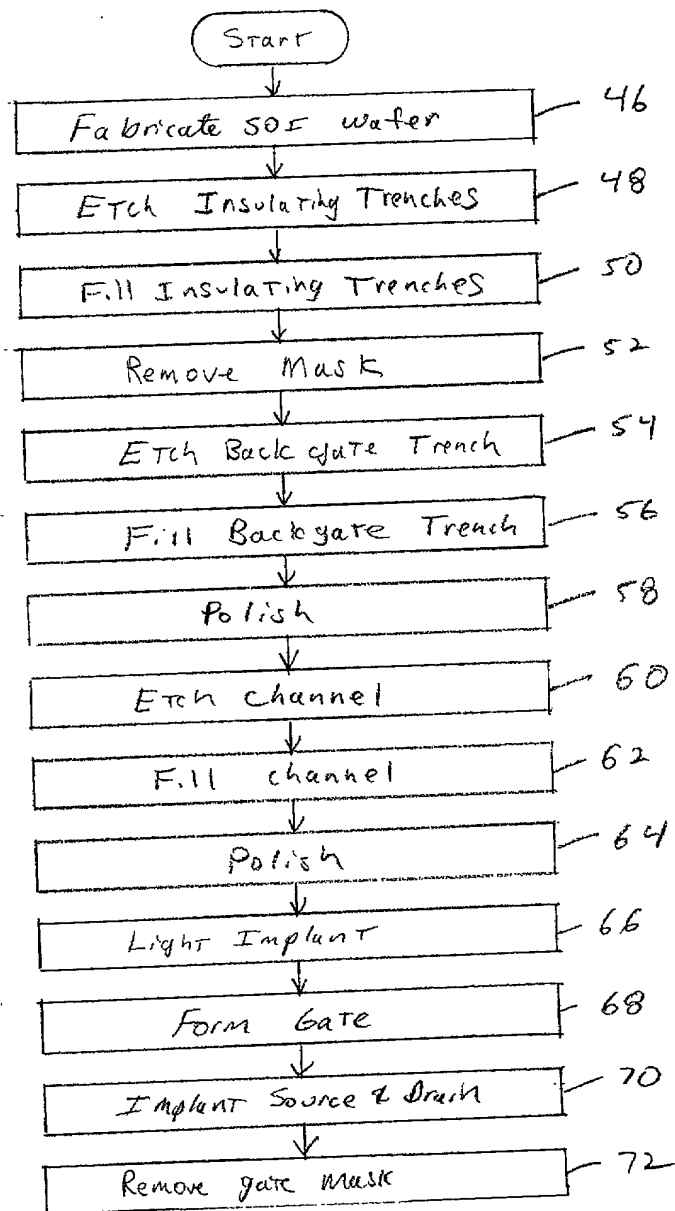 Start
Fabricate SOI wafer 46
Etch Insulating Trenches 48
Fill Insulating Trenches 50
Remove Mask 52
Etch Backgate Trench 54
Fill Backgate Trench 56
Polish 58
Etch channel 60
Fill channel 62
Polish 64
Light Implant 66
Form Gate 68
Implant Source & Drain 70
Remove gate Mask 72